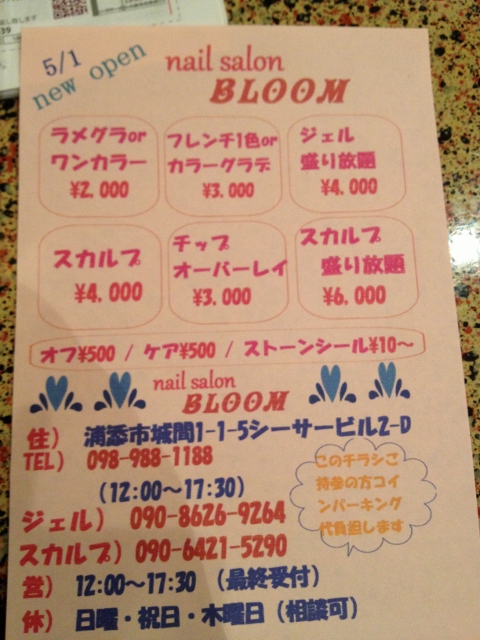 5/1
new open
nail salon
BLOOM
ラメグラor
ワンカラー
¥2,000
フレンチ1色or
カラーグラデ
¥3,000
ジェル
盛り放題
¥4,000
スカルプ
¥4,000
チップ
オーバーレイ
¥3,000
スカルプ
盛り放題
¥6,000
オフ¥500 / ケア¥500 / ストーンシール¥10～
nail salon
BLOOM
住） 浦添市城間1-1-5シーサービル2-D
TEL） 098-988-1188
（12:00～17:30）
ジェル） 090-8626-9264
スカルプ） 090-6421-5290
営） 12:00～17:30 （最終受付）
休） 日曜・祝日・木曜日（相談可）
このチラシご
持参の方コイ
ンパーキング
代負担します